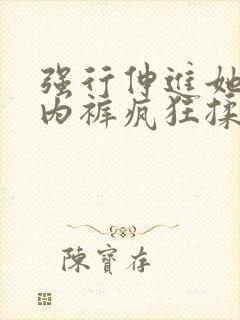 强行伸进她
内裤疯狂揉
陈宝存